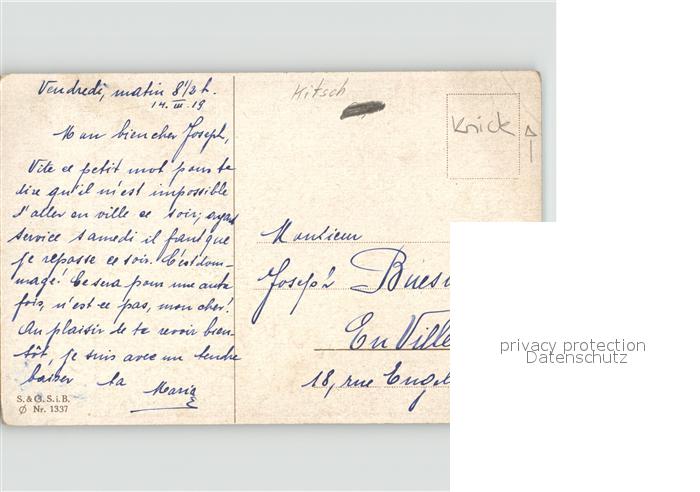 Vendredi, matin 8 1/2 h.
14. III. 19
Mon bien cher Joseph,
Vite ce petit mot pour te
dire qu'il m'est impossible
d'aller en ville ce soir, ayant
service samedi il faut que
je repasse ce soir. C'est dom-
mage! Ce sera pour une autre
fois, n'est-ce pas, mon cher!
Au plaisir de te revoir bien-
tôt, je suis avec un tendre
baiser ta
Maria
S. & G. S. i. B.
Nr. 1337
Kitsch
Knick
Monsieur
Joseph
En Ville
18, rue Engel
privacy protection
Datenschutz